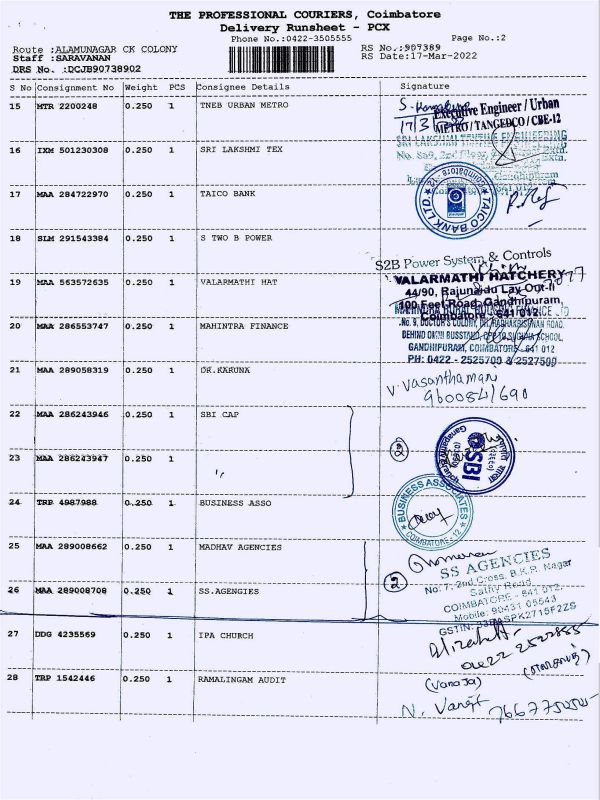 THE PROFESSIONAL COURIERS, Coimbatore
Delivery Runsheet - PCX
Phone No.:0422-3505555 Page No.:2
Route :ALAMUNAGAR CK COLONY RS No.:907389
Staff :SARAVANAN RS Date:17-Mar-2022
DRS No. :DCJB90738902
S No Consignment No Weight PCS Consignee Details Signature
15 MTR 2200248 0.250 1 TNEB URBAN METRO
Executive Engineer / Urban
17/3/
METRO / TANGEDCO / CBE-12
16 IXM 501230308 0.250 1 SRI LAKSHMI TEX
17 MAA 284722970 0.250 1 TAICO BANK
TAICO BANK LTD
18 SLM 291543384 0.250 1 S TWO B POWER
S2B Power System & Controls
19 MAA 563572635 1 0.250 VALARMATHI HAT
VALARMATHI HATCHERY
44/90, Rajunaidu Lay Out-II
100 Feet Road, Gandhipuram,
Coimbatore - 641 012.
20 MAA 286553747 0.250 1 MAHINTRA FINANCE
No. 9, DOCTOR'S COLONY, DR. RADHAKRISHNAN ROAD,
BEHIND OMNI BUSSTAND, OPP TO SUGUNA SCHOOL,
GANDHIPURAM, COIMBATORE - 641 012
PH: 0422 - 2525700 & 2527500
21 MAA 289058319 0.250 1 DR.KARUNA
V. Vasanthamani
9600841690
22 MAA 286243946 0.250 1 SBI CAP
23 MAA 286243947 0.250 1 "
2
SBI
24 TRP 4987988 0.250 1 BUSINESS ASSO
BUSINESS ASSOCIATES
COIMBATORE - 12
25 MAA 289008662 0.250 1 MADHAV AGENCIES
26 MAA 289008708 0.250 1 SS.AGENGIES
2
SS AGENCIES
No: 7, 2nd Cross, B.K.R. Nagar
Sathy Road
COIMBATORE - 641 012.
Mobile: 90431 05543
27 DDG 4235569 0.250 1 IPA CHURCH
Elizabeth
0422 2522855
28 TRP 1542446 0.250 1 RAMALINGAM AUDIT
(Vanaja)